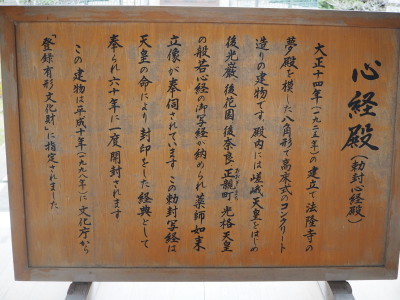 心経殿（勅封心経殿）
大正十四年（一九二五年）の建立で法隆寺の
夢殿を模した八角形で高床式のコンクリート
造りの建物です。殿内には嵯峨天皇をはじめ
後光厳 後花園 後奈良 正親町 光格天皇
の般若心経の御写経が納められ薬師如来
立像が奉伺されています この勅封写経は
天皇の命により封印をした経典として
奉られ六十年に一度開封されます
この建物は平成十年（一九九八年）に文化庁から
「登録有形文化財」に指定されました